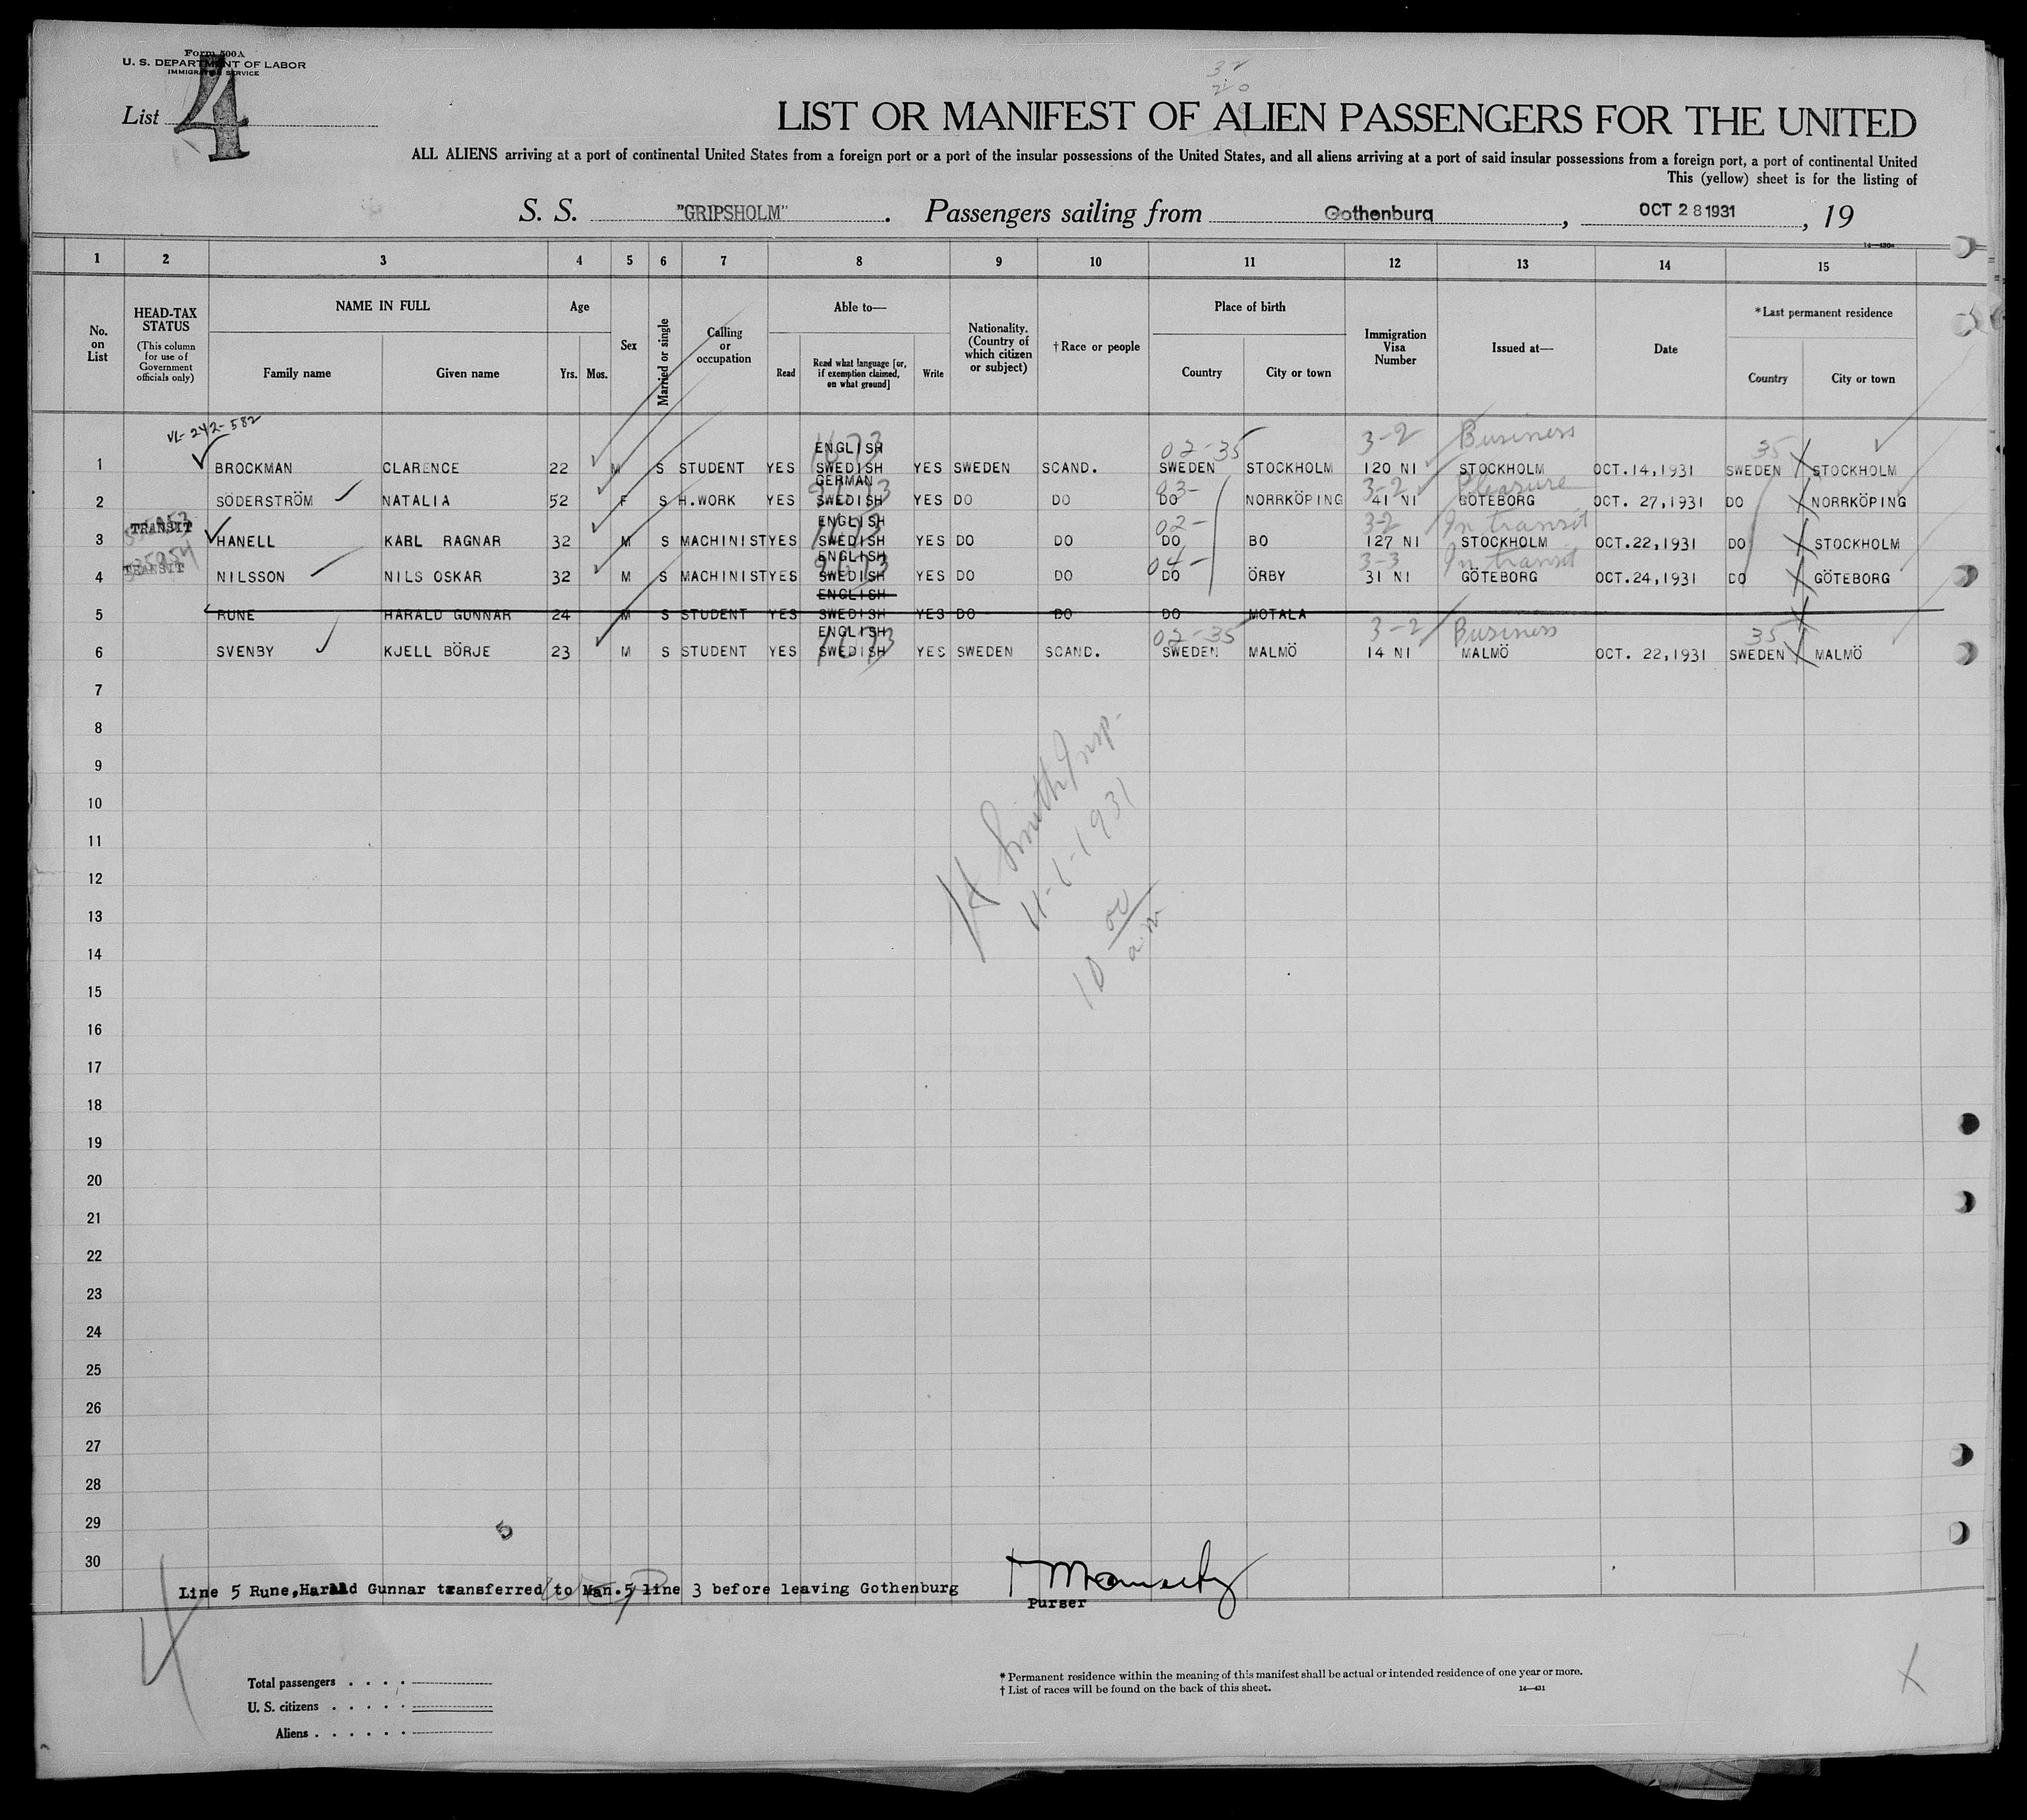 Form 500A
U. S. DEPARTMENT OF LABOR
IMMIGRATION SERVICE
List 4
LIST OR MANIFEST OF ALIEN PASSENGERS FOR THE UNITED
ALL ALIENS arriving at a port of continental United States from a foreign port or a port of the insular possessions of the United States, and all aliens arriving at a port of said insular possessions from a foreign port, a port of continental United
This (yellow) sheet is for the listing of
S. S. "GRIPSHOLM". Passengers sailing from Gothenburg, OCT 28 1931, 19
1 2 3 4 5 6 7 8 9 10 11 12 13 14 15
No. on List
HEAD-TAX STATUS
(This column for use of Government officials only)
NAME IN FULL
Family name Given name
Age
Yrs. Mos.
Sex
Married or single
Calling or occupation
Able to—
Read Read what language [or, if exemption claimed, on what ground] Write
Nationality. (Country of which citizen or subject)
†Race or people
Place of birth
Country City or town
Immigration Visa Number
Issued at—
Date
*Last permanent residence
Country City or town
VL-242-582
02-35 3-2 Business 35
1 BROCKMAN CLARENCE 22 M S STUDENT YES ENGLISH SWEDISH YES SWEDEN SCAND. SWEDEN STOCKHOLM 120 NI STOCKHOLM OCT.14,1931 SWEDEN STOCKHOLM
03- 3-2 Pleasure
2 SÖDERSTRÖM NATALIA 52 F S H.WORK YES GERMAN SWEDISH YES DO DO DO NORRKÖPING 41 NI GÖTEBORG OCT. 27,1931 DO NORRKÖPING
TRANSIT 02- 3-2 In transit
3 HANELL KARL RAGNAR 32 M S MACHINIST YES ENGLISH SWEDISH YES DO DO DO BO 127 NI STOCKHOLM OCT.22,1931 DO STOCKHOLM
TRANSIT 04- 3-3 In transit
4 NILSSON NILS OSKAR 32 M S MACHINIST YES ENGLISH SWEDISH YES DO DO DO ÖRBY 31 NI GÖTEBORG OCT.24,1931 DO GÖTEBORG
5 RUNE HARALD GUNNAR 24 M S STUDENT YES ENGLISH SWEDISH YES DO DO DO MOTALA
02-35 3-2 Business 35
6 SVENBY KJELL BÖRJE 23 M S STUDENT YES ENGLISH SWEDISH YES SWEDEN SCAND. SWEDEN MALMÖ 14 NI MALMÖ OCT. 22,1931 SWEDEN MALMÖ
7
8
9
10
11
12
13
14
15
16
17
18
19
20
21
22
23
24
25
26
27
28
29
30
H Smith Insp.
11-6-1931
10 00 a.m
5
Line 5 Rune,Harald Gunnar transferred to Man.5 line 3 before leaving Gothenburg
Purser
4
Total passengers
U. S. citizens
Aliens
* Permanent residence within the meaning of this manifest shall be actual or intended residence of one year or more.
† List of races will be found on the back of this sheet.
14—431